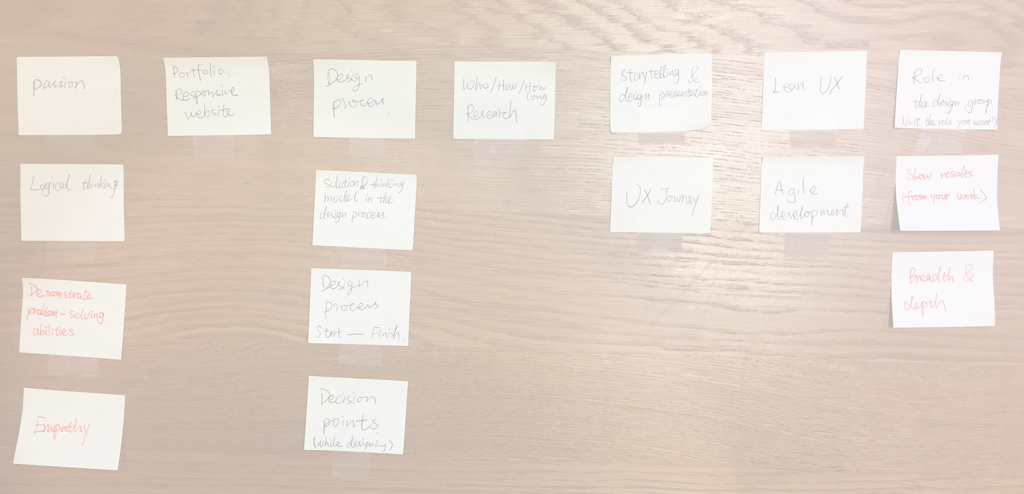 passion
Logical thinking
Demonstrate
problem-solving
abilities
Empathy
Portfolio.
Responsive
website
Design
process.
Solution & thinking
model in the
design process.
Design
process
Start — Finish.
Decision
points
(while designing)
Who/How/How long
Research
Storytelling &
design presentation
UX Journey
Lean UX
Agile
development
Role in
the design group
(is it the role you want?)
Show results
(from your work)
Breadth &
depth